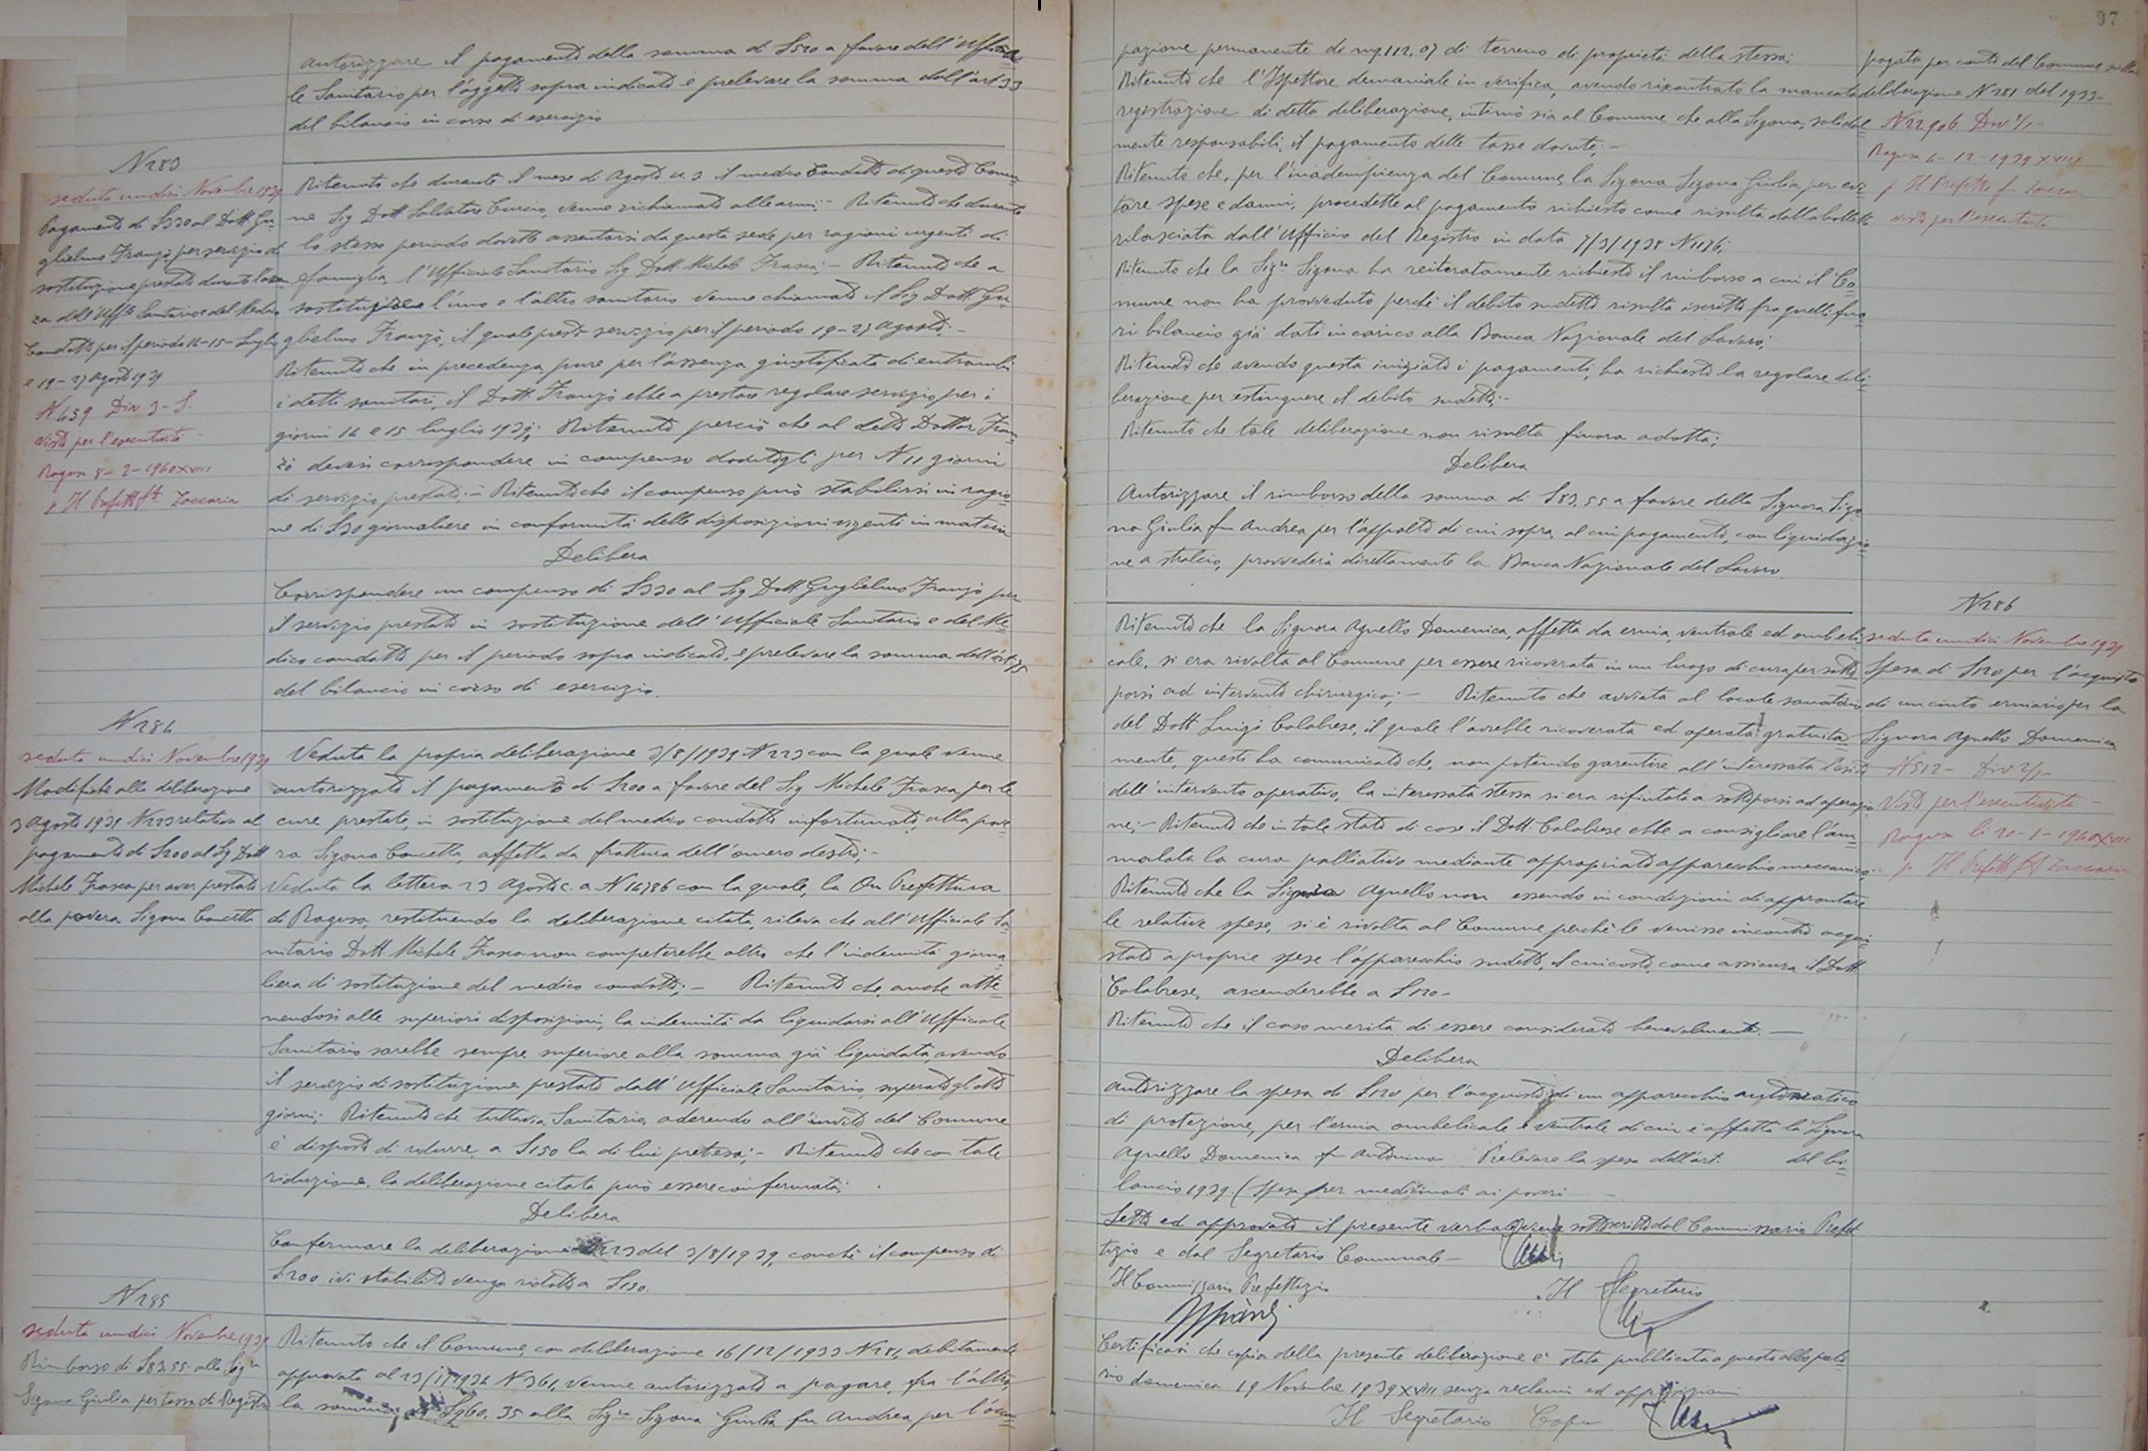 autorizzare il pagamento della somma di £520 a favore dell'Ufficia
le Sanitario per l'oggetto sopra indicato e prelevare la somma dall'art 33
del bilancio in corso di esercizio
N 283
seduta undici Novembre 1939
Pagamento di £330 al Dott Gu=
glielmo Franzò per servizio di
sostituzione prestato durante l'assen
za dell'Uff.le Sanitario e del Medico
Condotto per il periodo 14-15 Luglio
e 19-27 Agosto 1939
N 459 Div 3-S.
Visto per l'esecutività
Ragusa 8-2-1940 XVIII
p. Il Prefetto f.to Zaccaria
Ritenuto che durante il mese di Agosto u.s. il medico Condotto di questo Comu=
ne Sig Dott Salvatore Curcio, venne richiamato alle armi;- Ritenuto che durante
lo stesso periodo dovette assentarsi da questa sede per ragioni urgenti di
famiglia, l'Ufficiale Sanitario Sig Dott. Michele Frasca;- Ritenuto che a
sostituzione l'uno e l'altro sanitario venne chiamato il Sig Dott. Gu=
glielmo Franzò, il quale prestò servizio per il periodo 19-27 Agosto;-
Ritenuto che in precedenza pure per l'assenza giustificata di entrambi
i detti sanitari, il Dott. Franzò ebbe a prestare regolare servizio per i
giorni 14 e 15 luglio 1939; Ritenuto perciò che al detto Dottor Fran=
zò devesi corrispondere un compenso dovutogli per N 11 giorni
di servizio prestato;- Ritenuto che il compenso può stabilirsi in ragio=
ne di £30 giornaliere in conformità delle disposizioni vigenti in materia
Delibera
Corrispondere un compenso di £330 al Sig Dott Guglielmo Franzò per
il servizio prestato in sostituzione dell'Ufficiale Sanitario e del Me=
dico condotto per il periodo sopra indicato, e prelevare la somma dall'art 35
del bilancio in corso di esercizio.
N 284
seduta undici Novembre 1939
Modifiche alla deliberazione
3 Agosto 1939 N 223 relativa al
pagamento di £200 al Sig Dott
Michele Frasca per aver prestato
alla povera Sigona Concetta
Veduta la propria deliberazione 3/8/1939 N 223 con la quale venne
autorizzato il pagamento di £200 a favore del Sig Michele Frasca per le
cure prestate, in sostituzione del medico condotto infortunato, alla pove=
ra Sigona Concetta, affetta da frattura dell'omero destro;-
Veduta la lettera 23 Agosto c.a. N 14786 con la quale, la On Prefettura
di Ragusa, restituendo la deliberazione citata, rileva che all'Ufficiale Sa=
nitario Dott Michele Frasca non competerebbe altro che l'indennità giorna=
liera di sostituzione del medico condotto;- Ritenuto che, anche atte=
nendosi alle superiori disposizioni, la indennità da liquidarsi all'Ufficiale
Sanitario sarebbe sempre superiore alla somma già liquidata, avendo
il servizio di sostituzione prestato dall'Ufficiale Sanitario, superato gli otto
giorni; Ritenuto che tuttavia Sanitario, aderendo all'invito del Comune
è disposto di ridurre, a £150 la di lui pretesa;- Ritenuto che con tale
riduzione, la deliberazione citata può essere confermata;
Delibera
Confermare la deliberazione N 223 del 3/8/1939, con che il compenso di
£200 ivi stabilito venga ridotto a £150.
N 285
seduta undici Novembre 1939
Rimborso di £83.55 alla Sig.ra
Sigona Giulia per tassa di Registro
Ritenuto che il Comune, con deliberazione 16/12/1933 N 281, debitamente
approvata al 23/1/1934 N 361, venne autorizzato a pagare, fra l'altro,
la somma £960,35 alla Sig.ra Sigona Giulia fu Andrea per l'occu=
97
pazione permanente di mq 112,07 di terreno di proprietà della stessa;
Ritenuto che l'Ispettore demaniale in verifica, avendo riscontrato la mancata
registrazione di detta deliberazione, intimò sia al Comune che alla Sigona, solidal=
mente responsabili, il pagamento delle tasse dovute;-
Ritenuto che, per l'inadempienza del Comune, la Signora Sigona Giulia per evi=
tare spese e danni, procedette al pagamento richiesto come risulta dalla bolletta
rilasciata dall'Ufficio del Registro in data 7/3/1938 N 1176;
Ritenuto che la Sig.ra Sigona ha reiteratamente richiesto il rimborso a cui il Co=
mune non ha provveduto perché il debito sudetto risulta iscritto fra quelli fuo=
ri bilancio già dati in carico alla Banca Nazionale del Lavoro;
Ritenuto che avendo questa iniziato i pagamenti, ha richiesto la regolare deli=
berazione per estinguere il debito sudetto;-
Ritenuto che tale deliberazione non risulta finora adotta;
Delibera
Autorizzare il rimborso della somma di £83,55 a favore della Signora Sigo=
na Giulia fu Andrea per l'appalto di cui sopra, al cui pagamento, con liquidazio=
ne a stralcio, provvederà direttamente la Banca Nazionale del Lavoro
pagata per conto del Comune sulla
deliberazione N 281 del 1933
N 22906 Div 2/1-
Ragusa 4-12-1939 XVIII
p. Il Prefetto f.to Zaccaria
visto per l'esecutività
N 286
seduta undici Novembre 1939
Spesa di £120 per l'acquisto
di un cinto erniario per la
Signora Agnello Domenica
N 512- Div 2/1-
Visto per l'esecutività-
Ragusa li 20-1-1940 XVIII
p. Il Prefetto f.to Zaccaria
Ritenuto che la Signora Agnello Domenica, affetta da ernia ventrale ed ombeli=
cale, si era rivolta al Comune per essere ricoverata in un luogo di cura per sotto
porsi ad intervento chirurgico;- Ritenuto che avviata al locale sanatorio
del Dott Luigi Calabrese, il quale l'avrebbe ricoverata ed operata gratuita=
mente, questi ha comunicato che, non potendo garentire all'interessata l'esito
dell'intervento operativo, la interessata stessa si era rifiutata a sottoporsi ad operazio
ne;- Ritenuto che in tale stato di cose il Dott. Calabrese ebbe a consigliare l'am=
malata la cura palliativa mediante appropriato apparecchio meccanico;
Ritenuto che la Signora Agnello non essendo in condizioni di approntare
le relative spese, si è rivolta al Comune perché le venisse incontro acqui=
stato a proprie spese l'apparecchio sudetto, il cui costo, come assicura il Dott
Calabrese, ascenderebbe a £120-
Ritenuto che il caso merita di essere considerato benevolmente.-
Delibera
Autorizzare la spesa di £120 per l'acquisto di un apparecchio automatico
di protezione, per l'ernia ombelicale e ventrale di cui è affetta la Signora
Agnello Domenica fu Antonino Prelevare la spesa dell'art. del bi=
lancio 1939 (Spesa per medicinali ai poveri
Letto ed approvato il presente verbale viene sottoscritto dal Commissario Prefet=
tizio e dal Segretario Comunale-
Il Commissario Prefettizio Il Segretario
Certificasi che copia della presente deliberazione è stata pubblicata a questo albo preto
rio domenica 19 Novembre 1939 XVIII senza reclami ed opposizioni
Il Segretario Capo